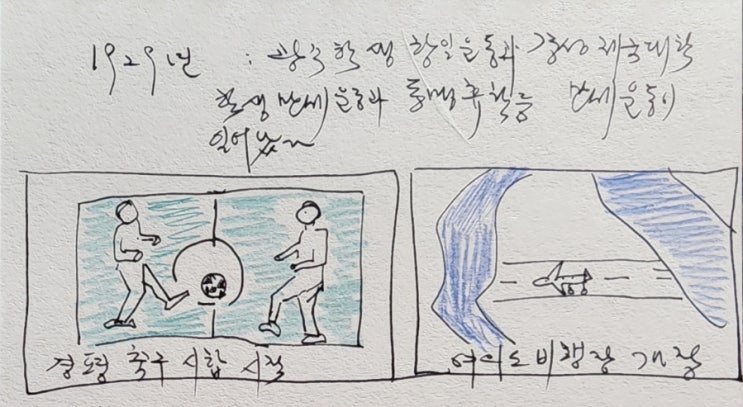 1929년 : 광주학생 항일운동과 경성제국대학
학생 만세운동과 동맹휴학등 만세운동이
일어났다
경포령 축구 시합 시작
여의도 비행장 개장